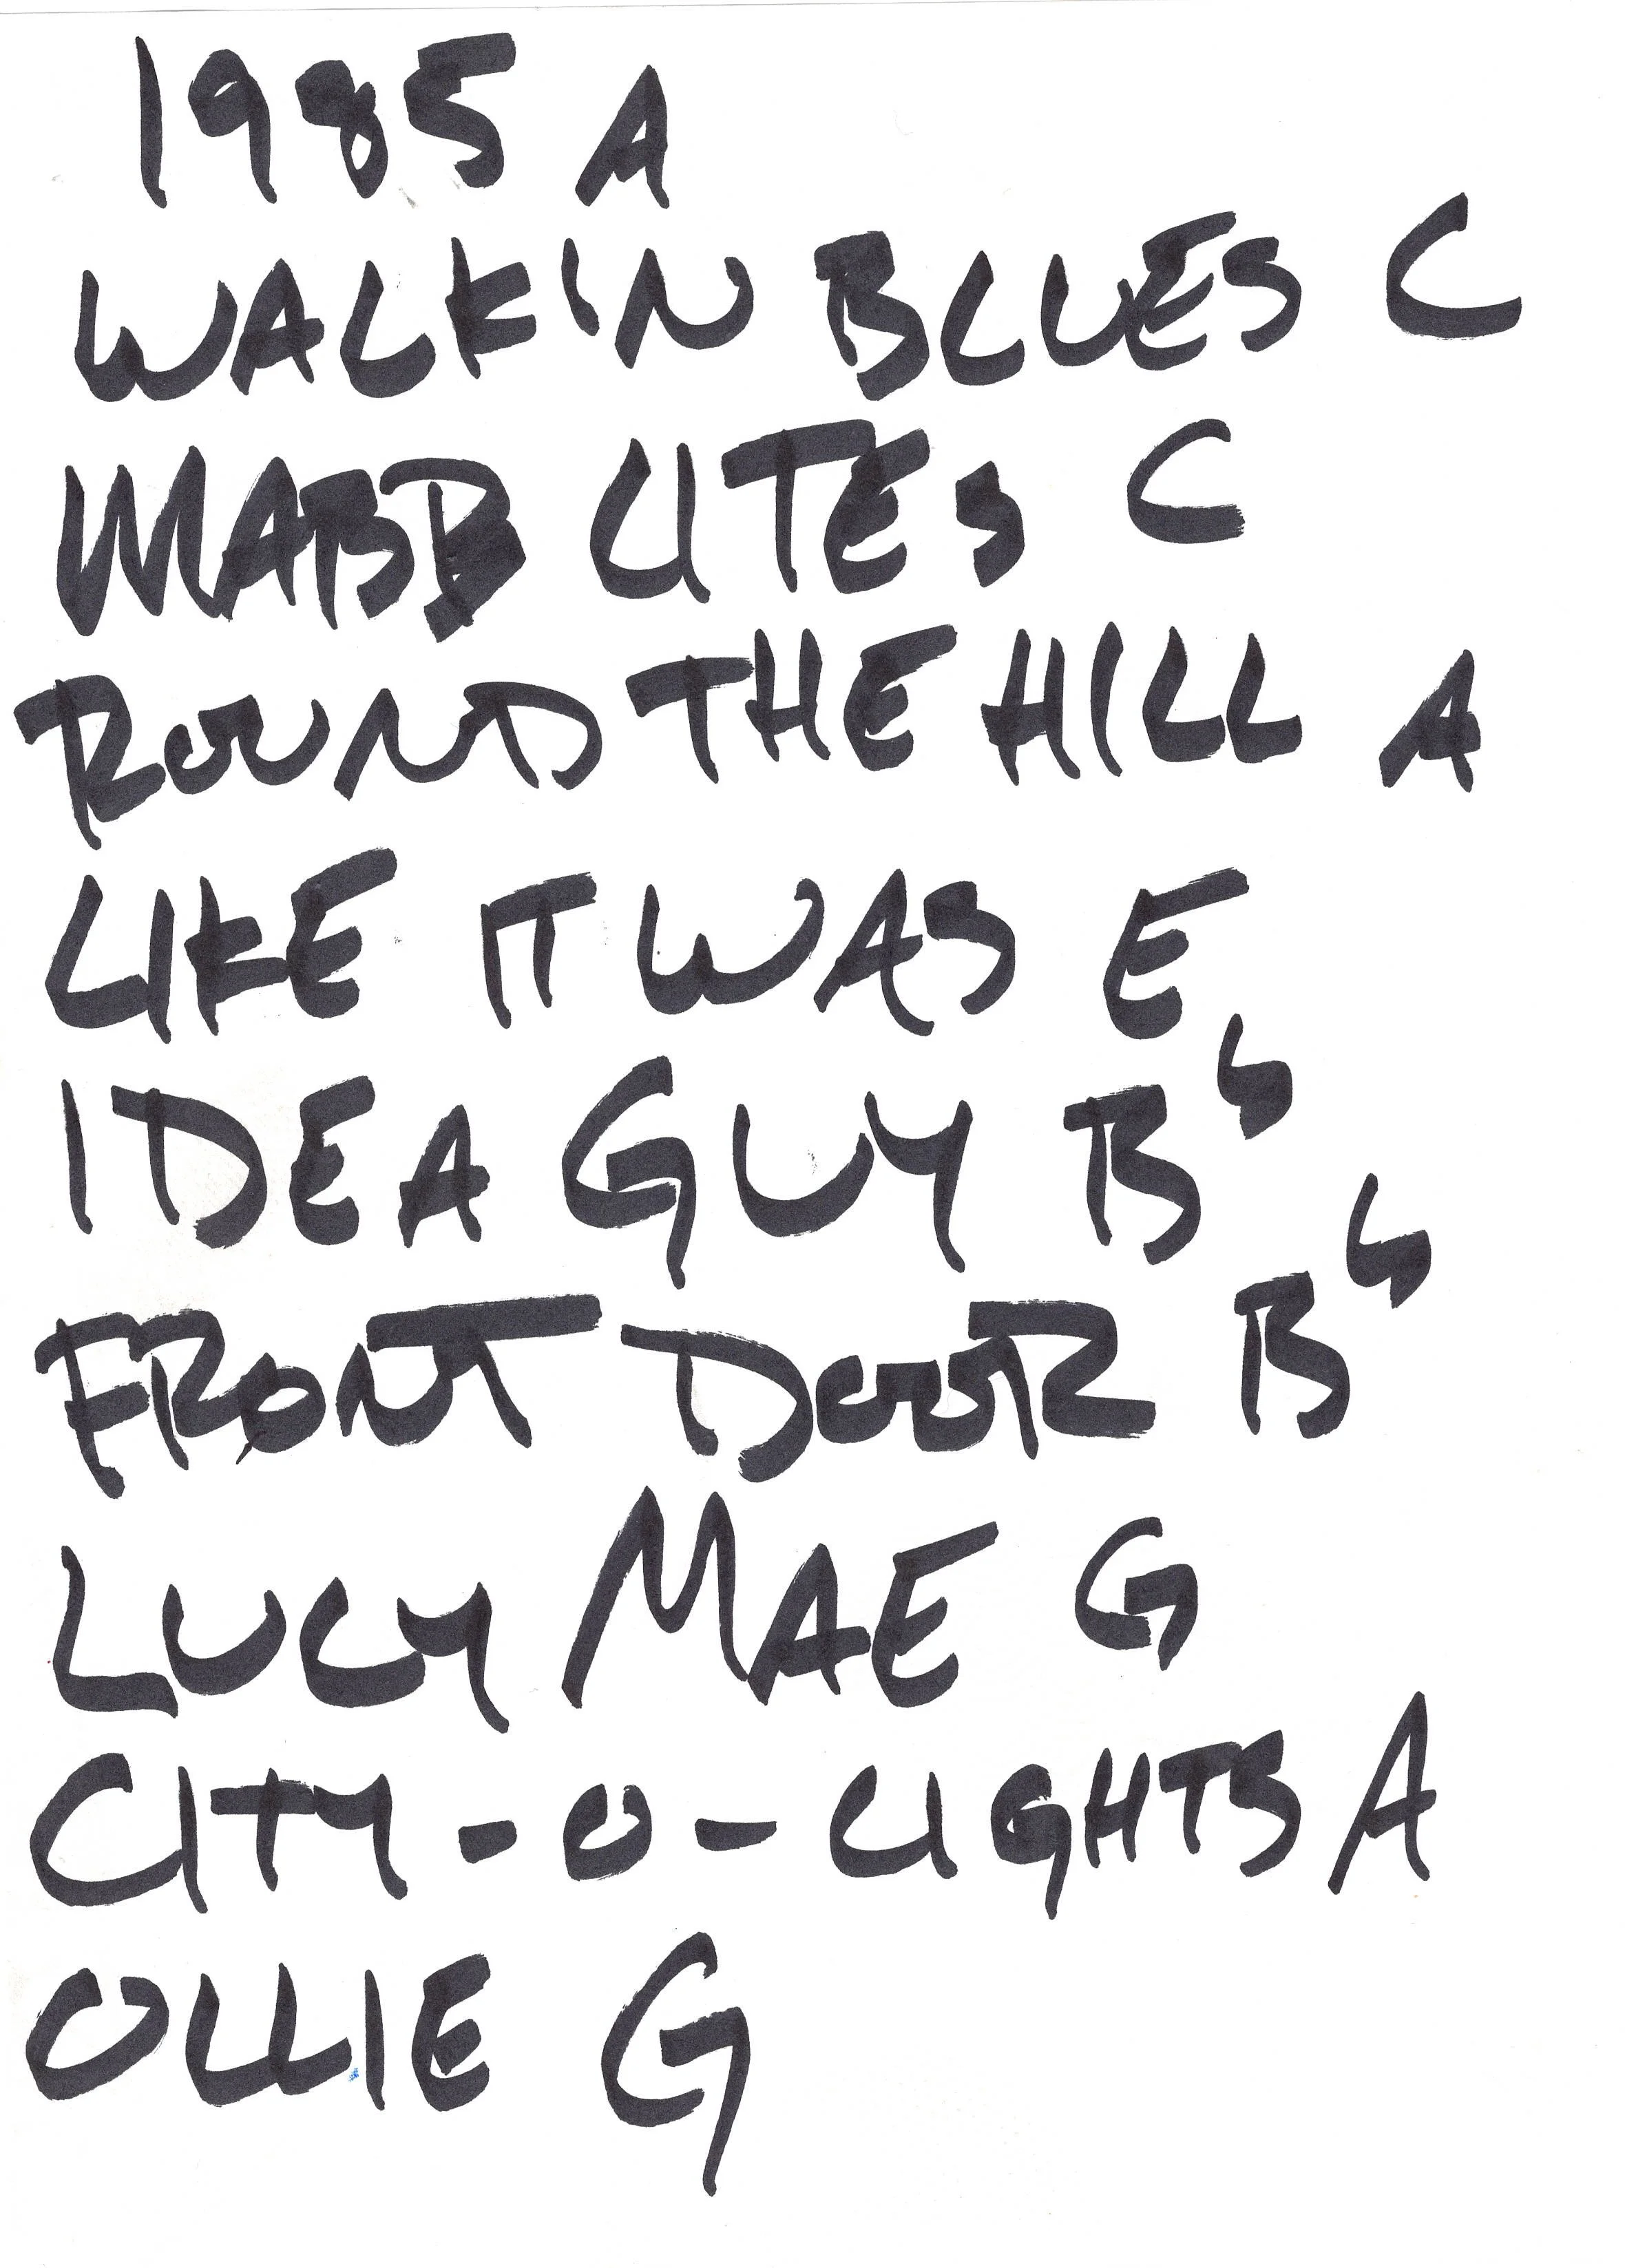 1985 A
WALKIN BLUES C
MABB LITES C
ROUND THE HILL A
LIKE IT WAS E
IDEA GUY Bb
FRONT DOOR Bb
LUCY MAE G
CITY-O-LIGHTS A
OLLIE G